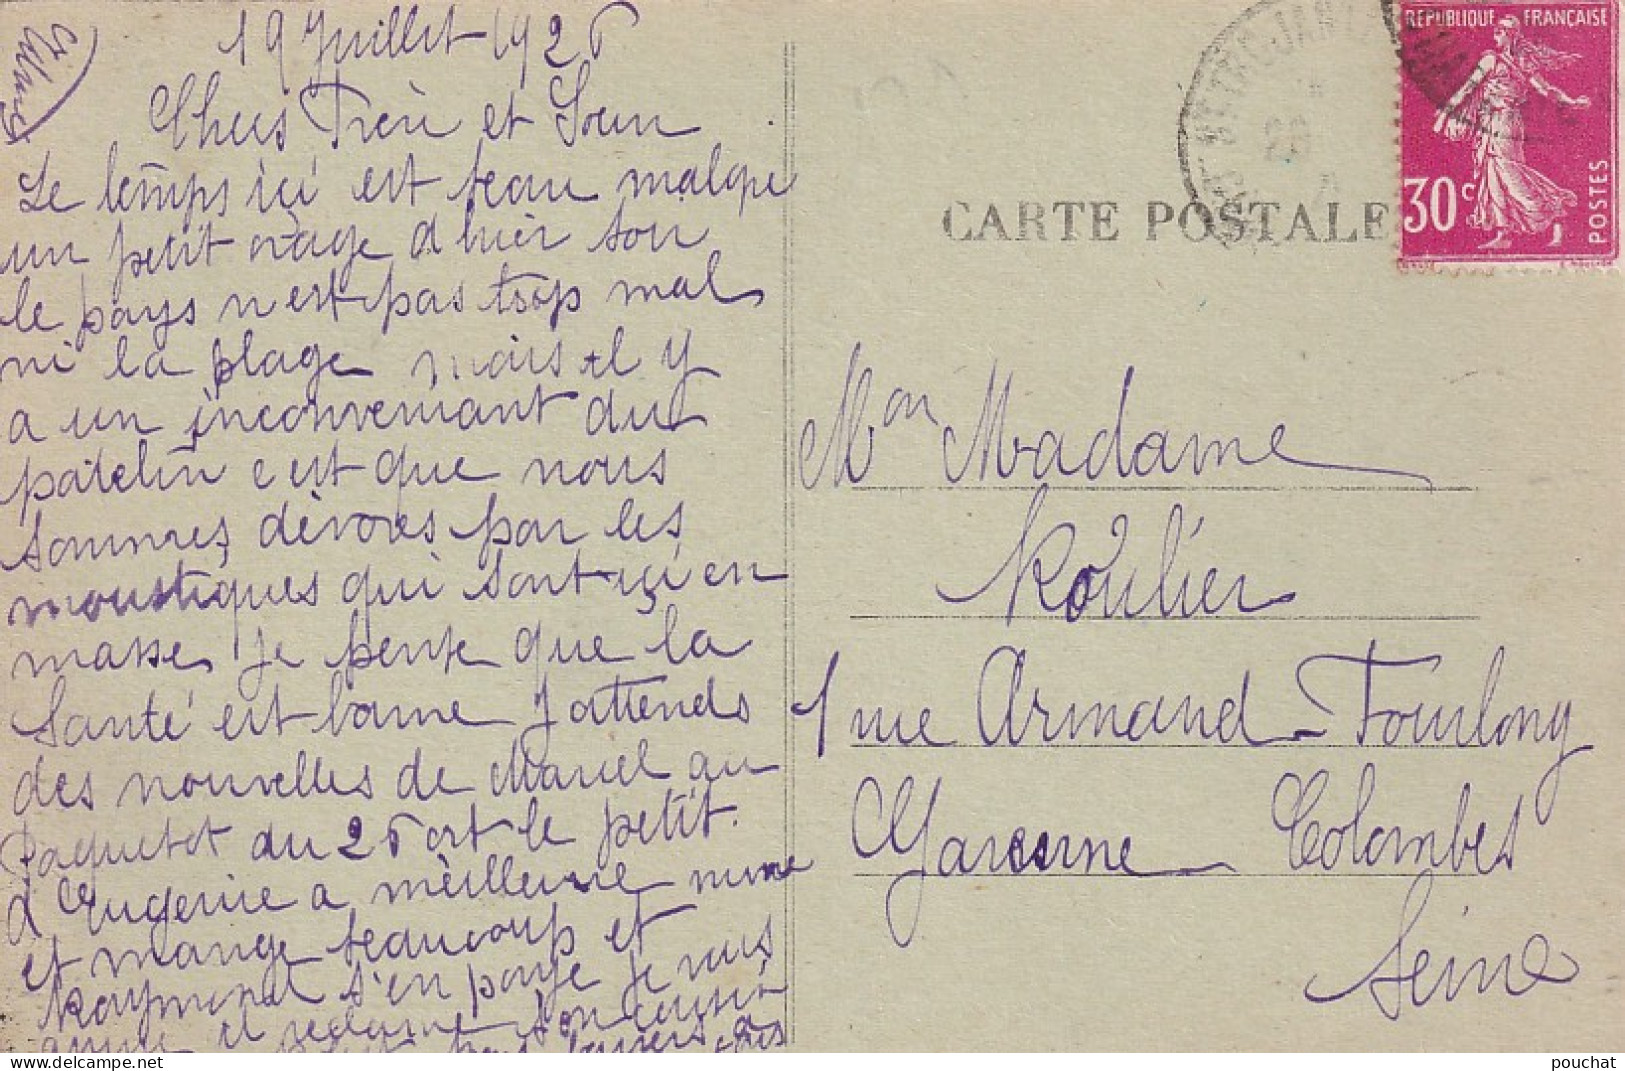 19 Juillet 1926
Chers Frère et Soeur
Le temps ici est beau malgré
un petit orage d hier soir
le pays n est pas trop mal
ni la plage mais il y
a un inconveniant du
patelin c est que nous
sommes dévorés par les
moustiques qui sont ici en
masse je pense que la
Santé est bonne J attends
des nouvelles de Marcel au
Paquebot du 26 ort le petit
d Eugenie a meilleure mine
et mange beaucoup et
Raymond s'en paye Je vous
il reclame son cousin
RÉPUBLIQUE FRANÇAISE
30c
POSTES
ST TROJAN
26
CARTE POSTALE
Mon Madame
Roulier
1 rue Armand-Fourlong
Garenne - Colombes
Seine
pouchat